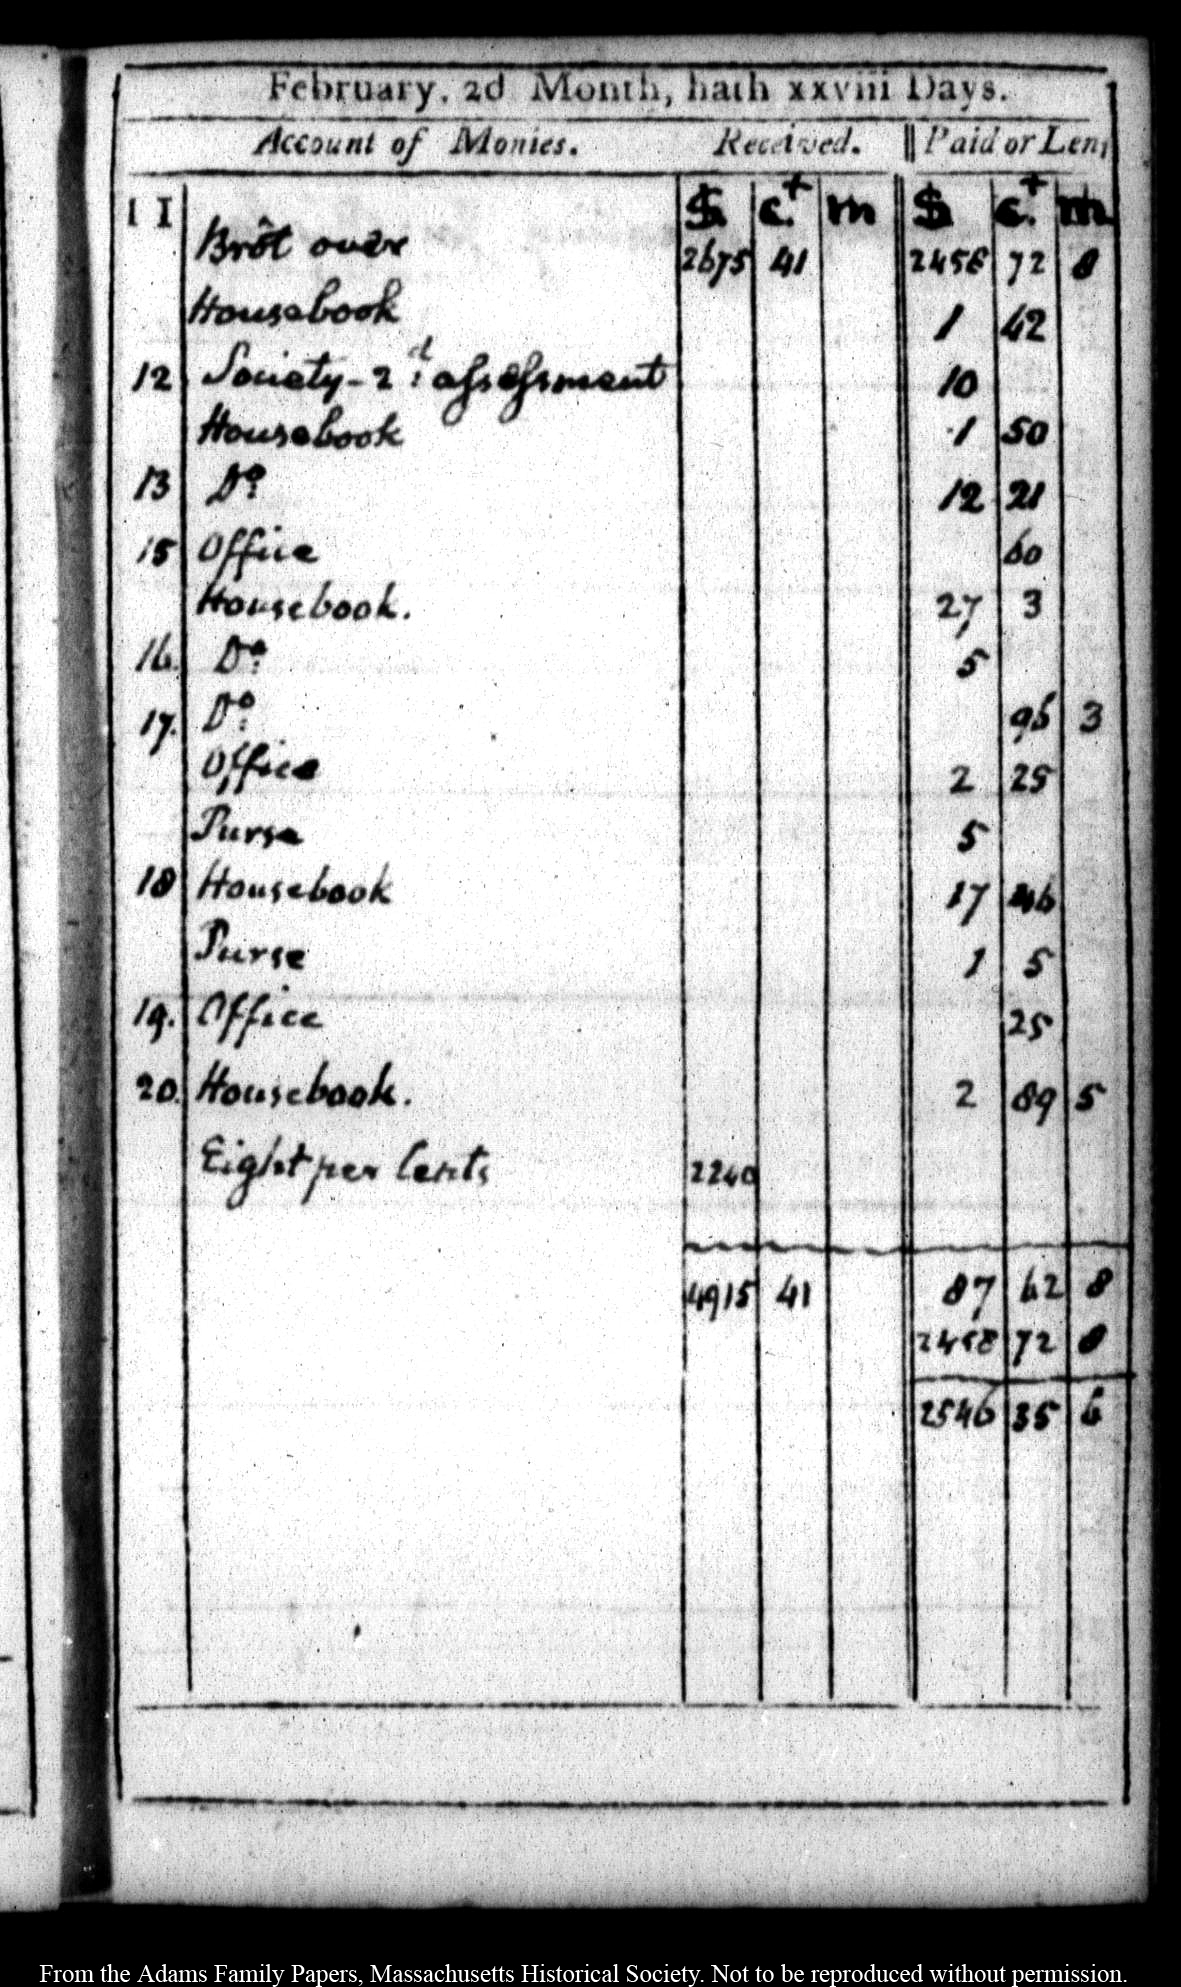 February, 2d Month, hath xxviii Days.
Account of Monies. Received. Paid or Len
$ c.t m $ c.t m
11 Brôt over 2675 41 2458 72 8
Housebook 1 42
12 Society - 2d: assessment 10
Housebook 1 50
13 Do: 12 21
15 Office 60
Housebook. 27 3
16. Do: 5
17. Do: 96 3
Office 2 25
Purse 5
18 Housebook 17 46
Purse 1 5
19. Office 25
20. Housebook. 2 89 5
Eight per Cents 2240
4915 41 87 62 8
2458 72 8
2546 35 6
From the Adams Family Papers, Massachusetts Historical Society. Not to be reproduced without permission.